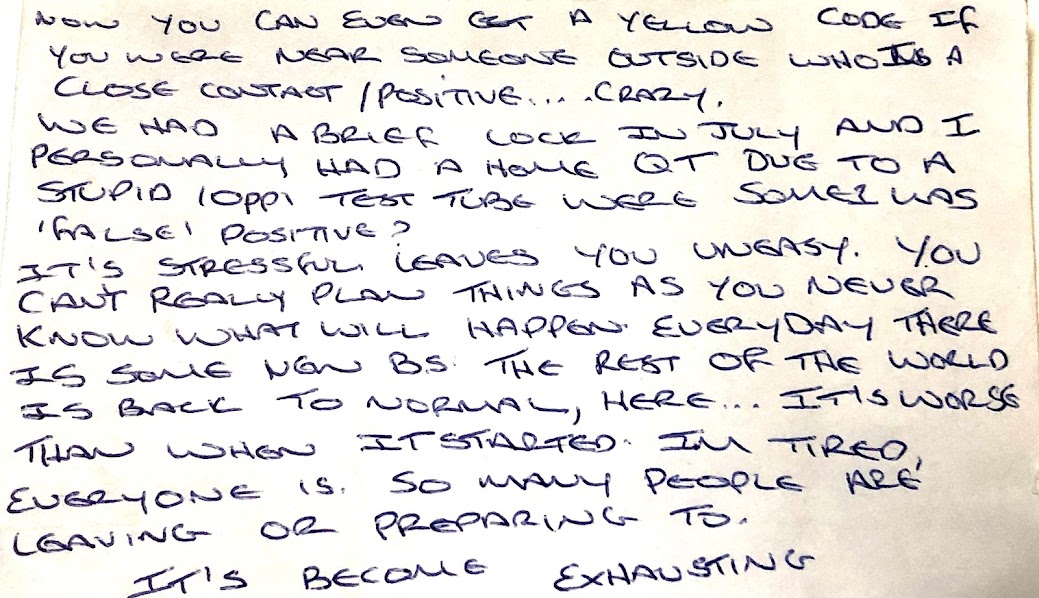 NOW YOU CAN EVEN GET A YELLOW CODE IF
YOU WERE NEAR SOMEONE OUTSIDE WHO IS A
CLOSE CONTACT / POSITIVE.... CRAZY.
WE HAD A BRIEF LOCK IN JULY AND I
PERSONALLY HAD A HOME QT DUE TO A
STUPID 10PPL TEST TUBE WERE SOME1 WAS
'FALSE' POSITIVE?
IT'S STRESSFUL. LEAVES YOU UNEASY. YOU
CANT REALLY PLAN THINGS AS YOU NEVER
KNOW WHAT WILL HAPPEN. EVERYDAY THERE
IS SOME NEW B.S. THE REST OF THE WORLD
IS BACK TO NORMAL, HERE... IT'S WORSE
THAN WHEN IT STARTED. IM TIRED,
EVERYONE IS. SO MANY PEOPLE ARE
LEAVING OR PREPARING TO.
IT'S BECOME EXHAUSTING